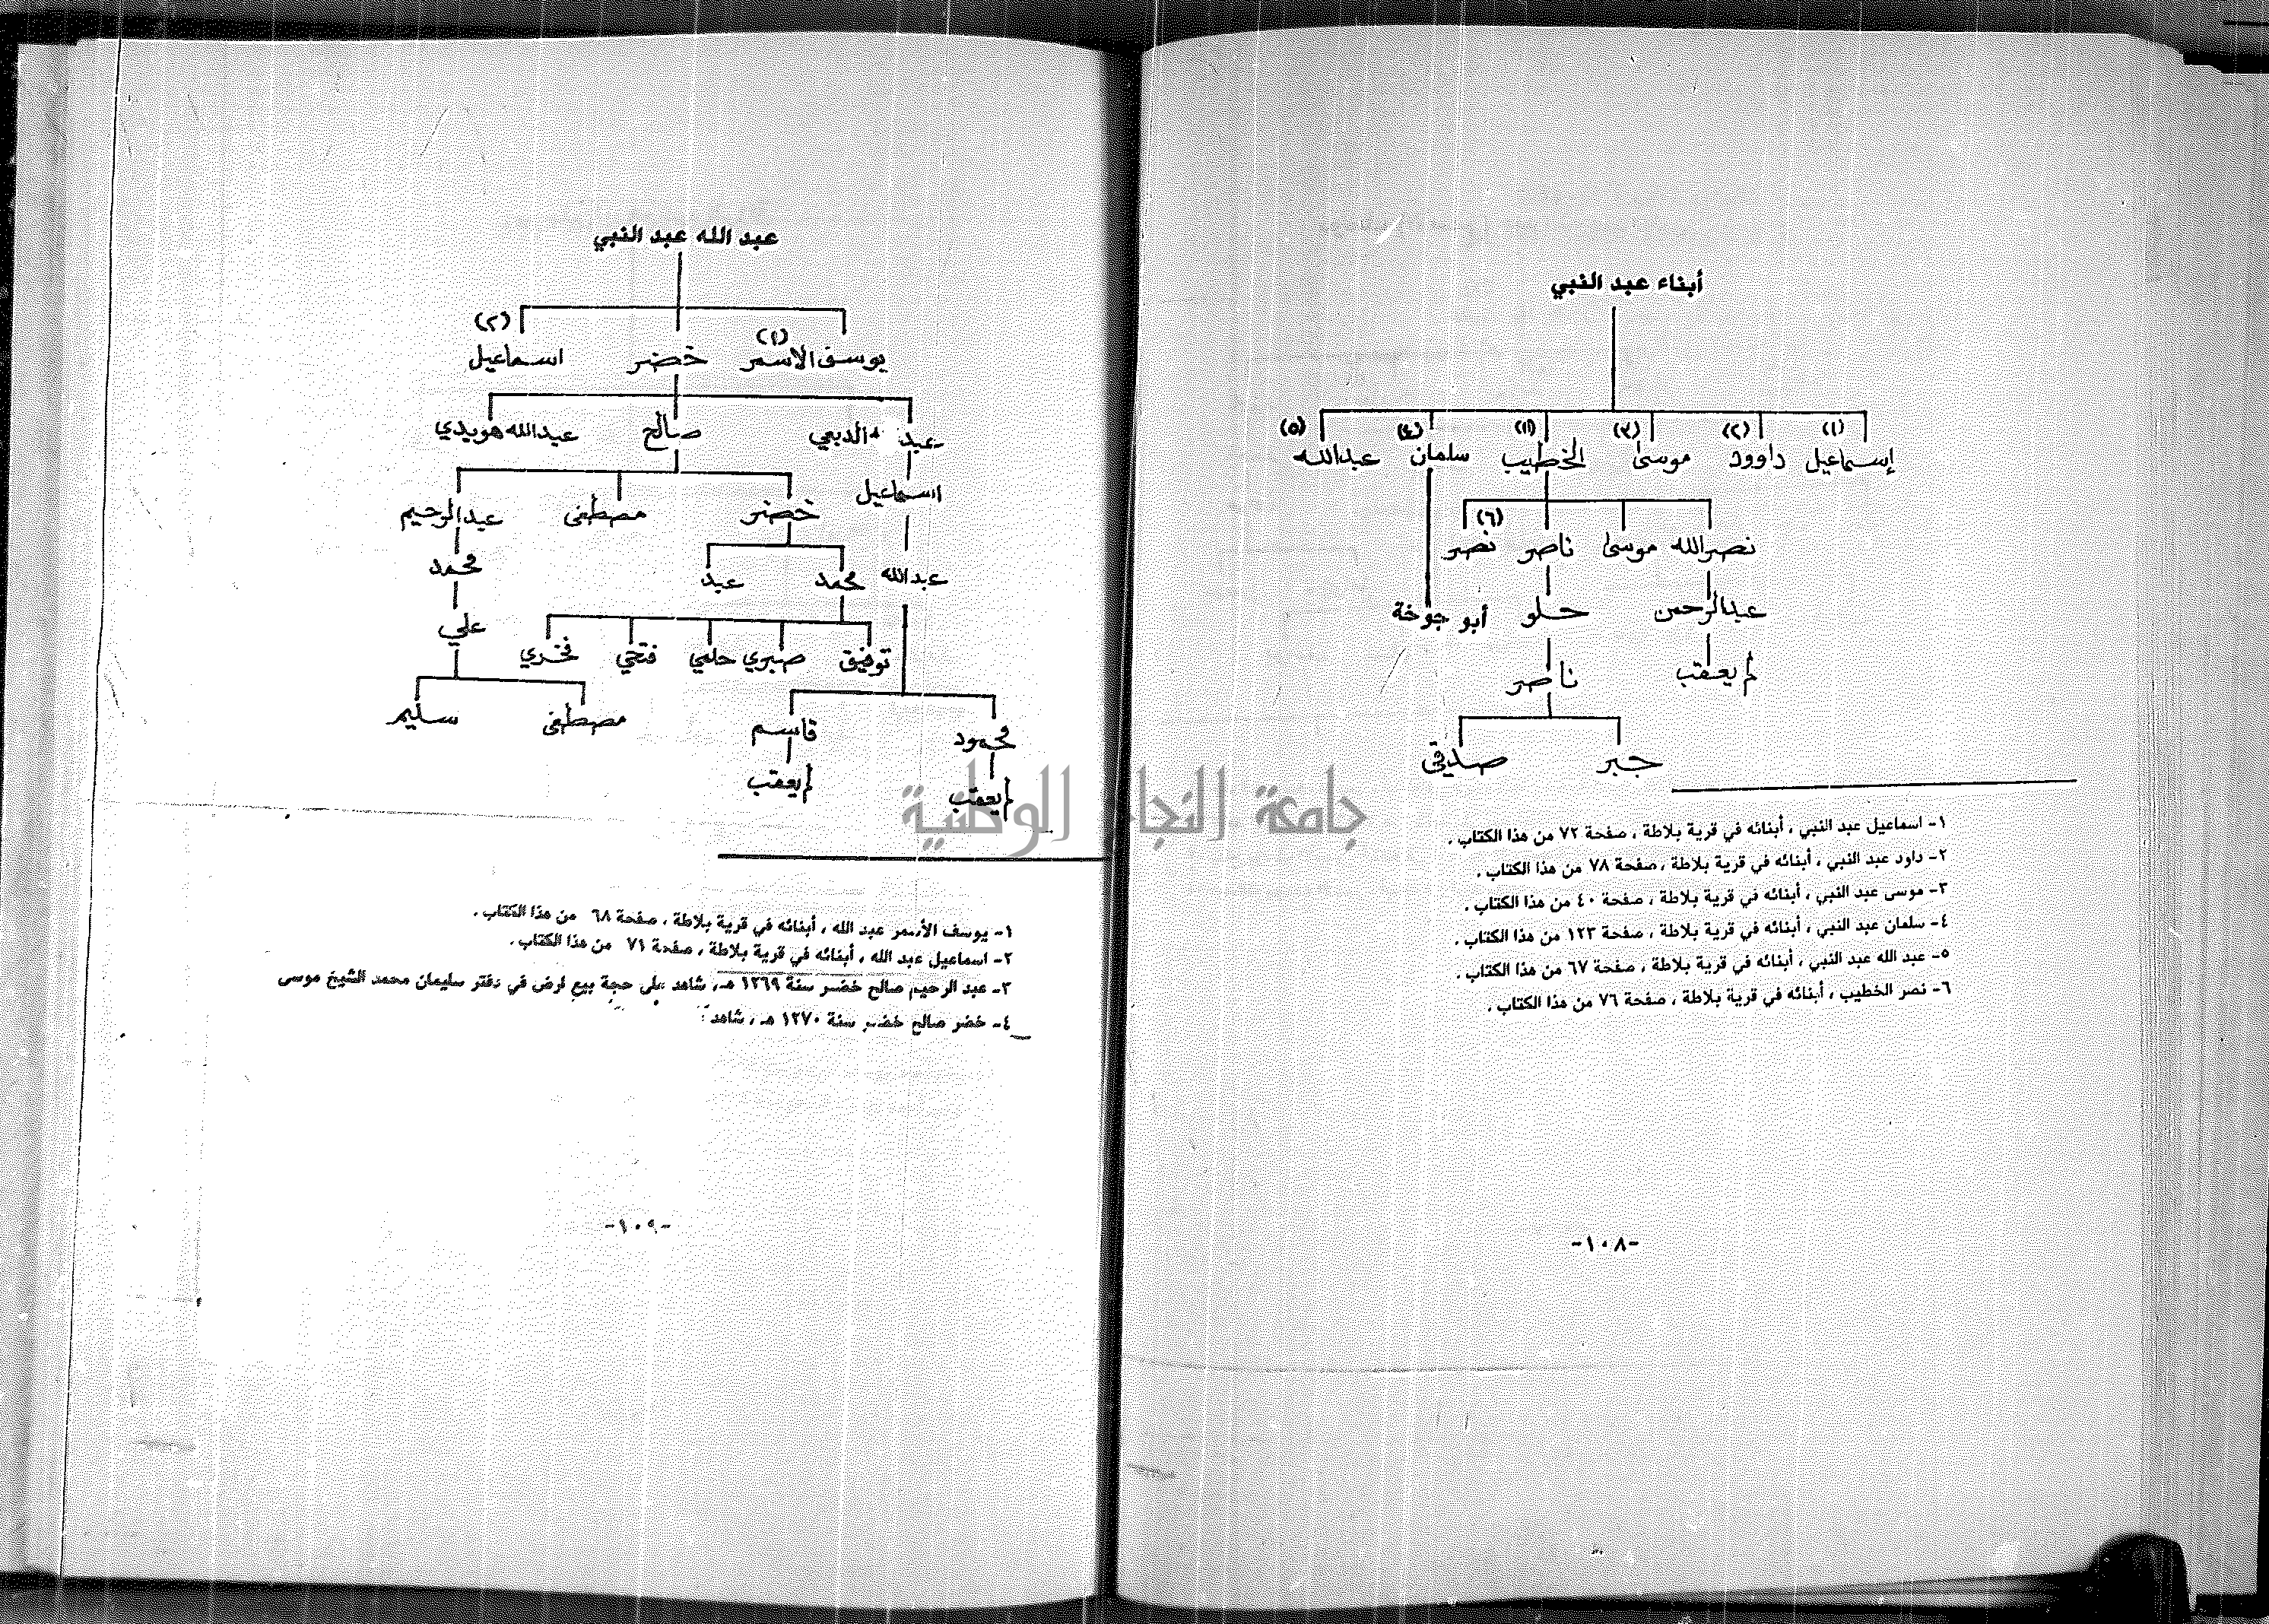 أبناء عبد النبي
(١) (٢) (٣) (١١) (٤) (٥)
إسماعيل داوود موسى الخطيب سلمان عبدالله
(٦)
نصرالله موسى ناصر نصر
عبدالرحمن حلو أبو جوخة
لم يعقب ناصر
جبر صدقي
١- اسماعيل عبد النبي ، أبنائه في قرية بلاطة ، صفحة ٧٢ من هذا الكتاب .
٢- داود عبد النبي ، أبنائه في قرية بلاطة ، صفحة ٧٨ من هذا الكتاب .
٣- موسى عبد النبي ، أبنائه في قرية بلاطة ، صفحة ٤٠ من هذا الكتاب .
٤- سلمان عبد النبي ، أبنائه في قرية بلاطة ، صفحة ١٢٣ من هذا الكتاب .
٥- عبد الله عبد النبي ، أبنائه في قرية بلاطة ، صفحة ٦٧ من هذا الكتاب .
٦- نصر الخطيب ، أبنائه في قرية بلاطة ، صفحة ٧٦ من هذا الكتاب .
-١٠٨-
عبد الله عبد النبي
(١) (٢)
يوسف الاسمر خضر اسماعيل
عبد الدبعي صالح عبدالله هويدي
اسماعيل خضر مصطفى عبدالرحيم
عبدالله محمد عبد محمد
توفيق صبري حلمي فتحي فخري علي
محمود قاسم مصطفى سليم
لم يعقب لم يعقب
١- يوسف الأسمر عبد الله ، أبنائه في قرية بلاطة ، صفحة ٦٨ من هذا الكتاب .
٢- اسماعيل عبد الله ، أبنائه في قرية بلاطة ، صفحة ٧١ من هذا الكتاب .
٣- عبد الرحيم صالح خضر سنة ١٢٦٩ هـ، شاهد على حجة بيع لرض في دفتر سليمان محمد الشيخ موسى
٤- خضر صالح خضر سنة ١٢٧٠ هـ ، شاهد
-١٠٩-
جامعة النجاح الوطنية